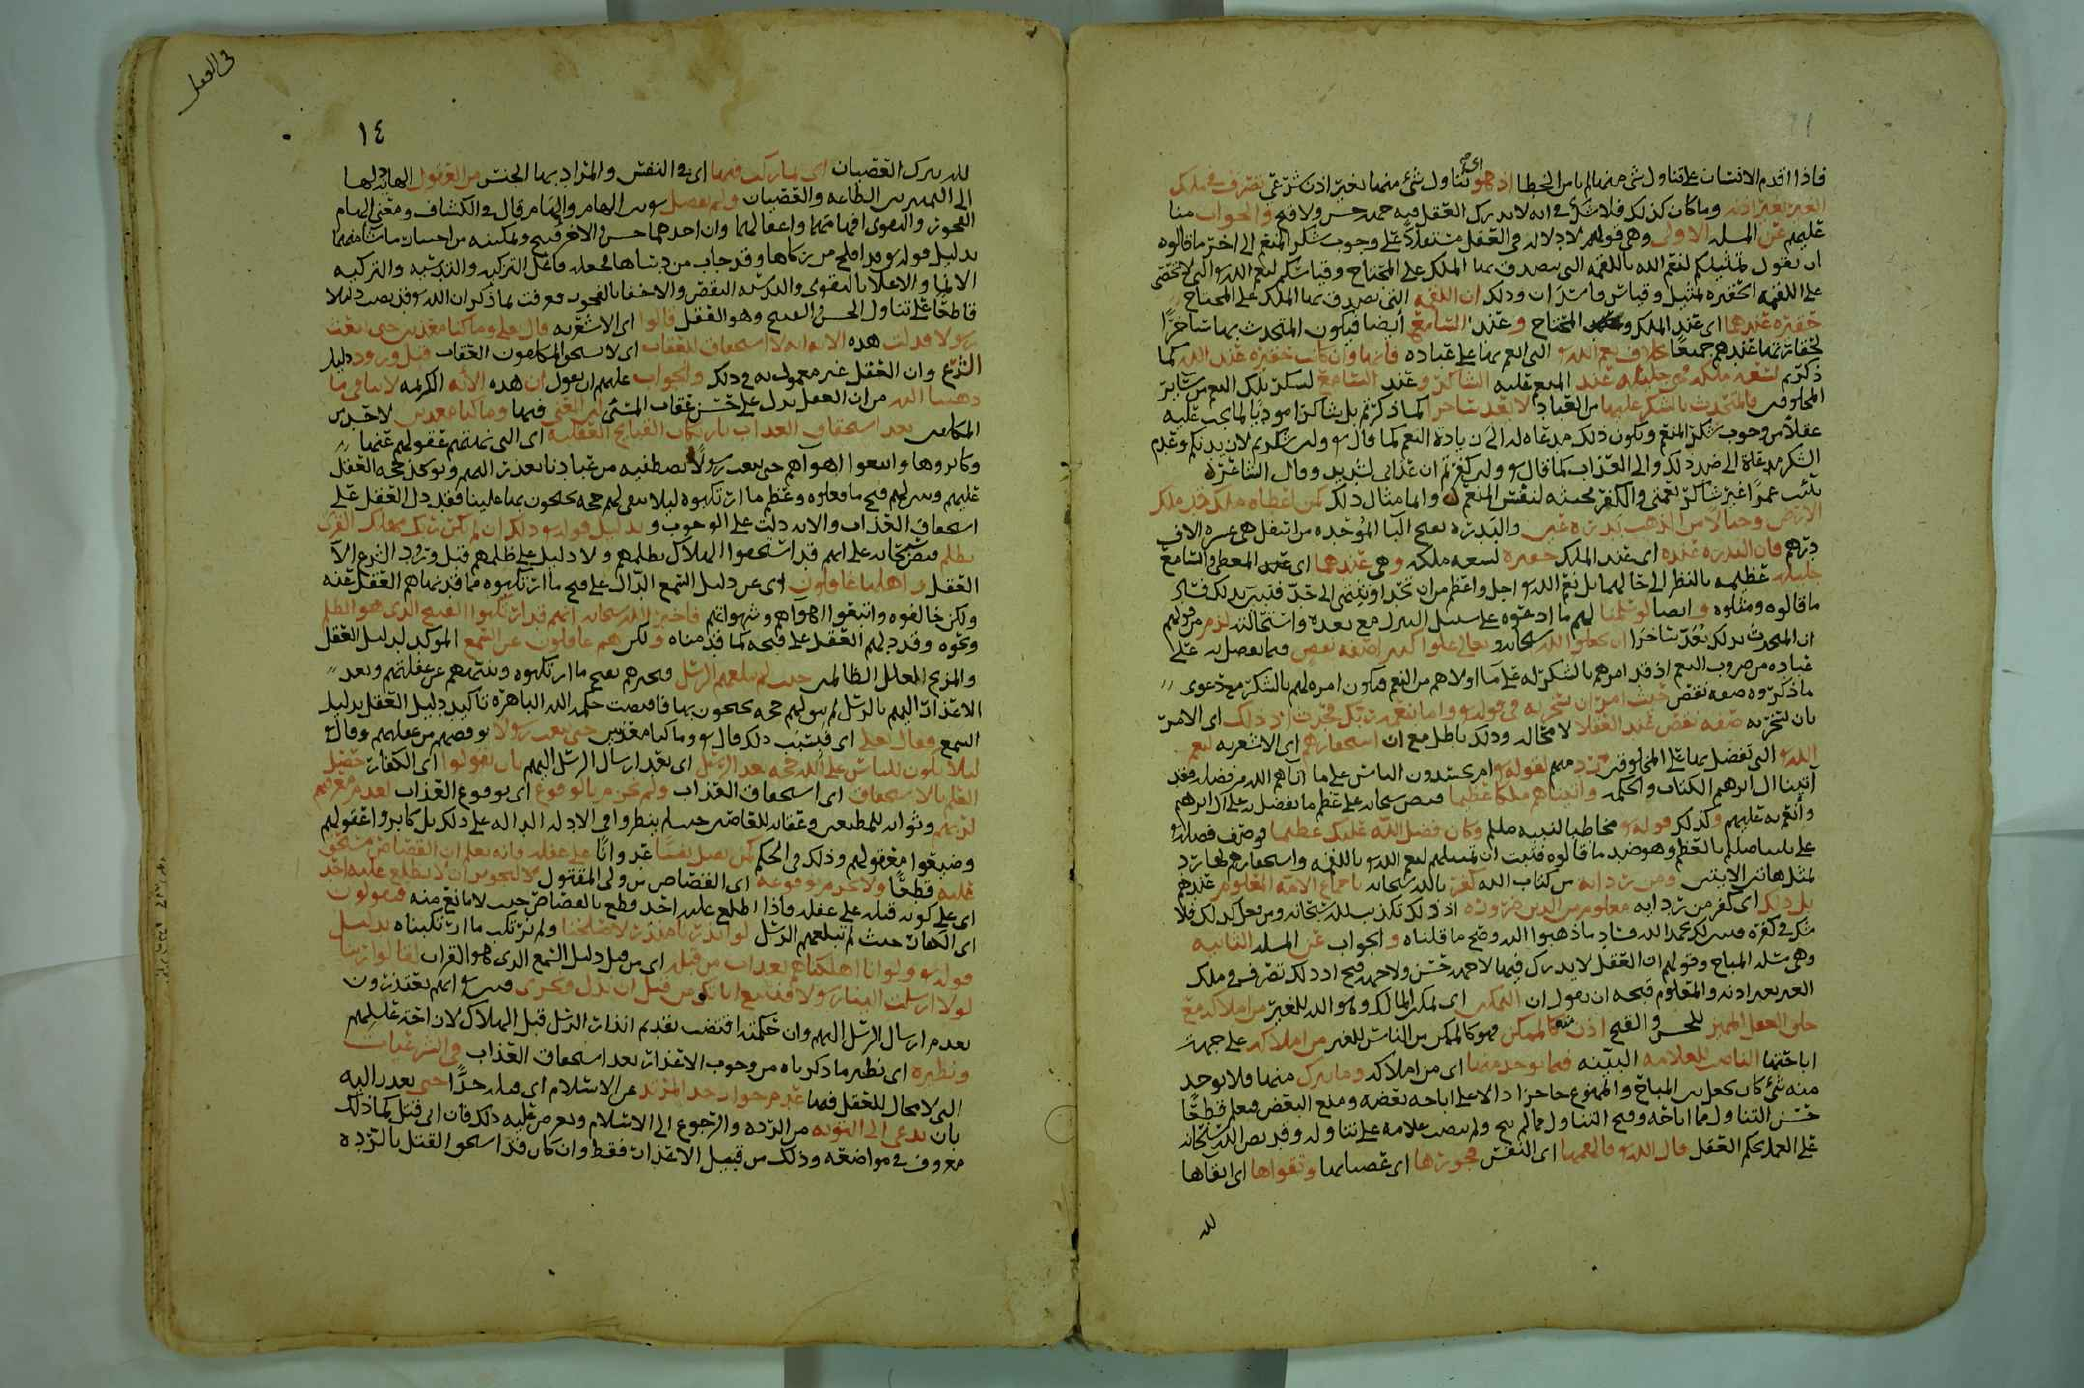 فاذا اقدم الانسان على تناول شيء منها لم يامن الخطا اذ هو اي تناول شيء منها بغير اذن شرعي تصرف في ملك
الغير بغير اذنه وما كان كذلك فلا شك في انه لا يدرك العقل فيه جهة حسن ولا قبح والجواب منا
عليهم عن المسلة الاولى وهي قولهم لا دلالة في العقل على وجوب شكر المنعم الى اخر ما قالوه
ان نقول تمثيلكم لنعم الله باللقمة التي يتصدق بها الملك على المحتاج وقياسكم لنعم الله التي لا تحصى
على اللقمة الحقيرة تمثيل وقياس فاسدان وذلك ان اللقمة التي تصدق بها الملك على المحتاج
حقيرة عندهما اي عند الملك والمحتاج وعند السامع ايضا فيكون المتحدث بها ساخرا
لحقارتها عندهم جميعا بخلاف نعم الله التي انعم بها على عباده فانها وان كانت حقيرة عند الله كما
ذكرتم لسعة ملكه فهي جليلة عند المنعم عليه الشاكر وعند السامع لشكر تلك النعم من سائر
المخلوقين فالمتحدث بالشكر عليها من العباد لا يعد ساخرا كما ذكرتم بل شاكرا موديا لما يجب عليه
عقلا من وجوب شكر المنعم ويكون ذلك مدعاة له الى زيادة النعم كما قال ولئن شكرتم لازيدنكم وعدم
الشكر مدعاة الى ضد ذلك والى العذاب كما قال ولئن كفرتم ان عذابي لشديد وقال الشاعر
نبئت عمرا غير شاكر نعمتي والكفر مخبثة لنفس المنعم وانما مثال ذلك كمن اعطاه ملك قد ملك
الارض وجبالا من الذهب بدرة عين والبدرة بفتح البا الموحدة من اسفل هي عشرة الاف
درهم فان البدرة عنده اي عند الملك حقيرة لسعة ملكه وهي عندهما اي عند المعطى والسامع
جليلة عظيمة بالنظر الى حالهما بل نعم الله اجل واعظم من ان تحد وتنتهي الى حد فتبين بذلك فساد
ما قالوه ومثلوه وايضا لو سلمنا لهم ما ادعوه على سبيل التنزل مع بعده واستحالته لزم من قولهم
ان المتحدث بذلك يعد ساخرا ان يكون الله سبحانه وتعالى علوا كبيرا صفة نقص فيما تفضل به على
عباده من ضروب النعم اذ قد امرهم بالشكر له على ما اولاهم من النعم فيكون امره لهم بالشكر مع دعوى
ما ذكروه صفة نقص حيث امر ان نسخر به في قوله واما بنعمة ربك فحدث اذ ذلك اي الامر
بان نسخر به صفة نقص عند العقلا لا محالة وذلك باطل مع ان استحقارهم اي الاشعرية لنعم
الله التي تفضل بها على المخلوقين رد منهم لقوله ام يحسدون الناس على ما اتاهم الله من فضله فقد
آتينا ال ابرهيم الكتاب والحكمة واتيناهم ملكا عظيما فنص سبحانه على عظم ما تفضل به على ال ابرهيم
وانعم به عليهم وكذلك قوله مخاطبا لنبيه صلم وكان فضل الله عليك عظيما فوصف فضله
على نبينا صلم بالعظم وهو ضد ما قالوه فثبت ان تمثيلهم لنعم الله باللقمة واستحقارهم لها رد
لمثل هاتين الايتين ومن رد اية من كتاب الله كفر بالله سبحانه باجماع الامة المعلوم عندهم
بل ذلك اي كفر من رد اية معلوم من الدين ضرورة اذ ذلك تكذيب لله سبحانه ومن فعل كذلك فلا
شك في كفره فتبين لك بحمد الله فساد ما ذهبوا اليه وصح ما قلناه والجواب عن المسلة الثانية
وهي مسلة المباح وقولهم ان العقل لا يدرك فيها لا جهة حسن ولا جهة قبح اذ ذلك تصرف في ملك
الغير بغير اذنه والمعلوم قبحه ان نقول ان التمكين اي تمكين المالك وهو الله للغير من املاكه مع
خلق العقل المميز للحسن والقبح اذن منه كالممكن فهو كالممكن من الناس للغير من املاكه على جهة
اباحتها الناصب للعلامة البينة فيما يوخذ منها اي من املاكه وما يترك منها فلا يوخذ
منه شي كان يجعل بين المباح والممنوع حاجزا دالا على اباحة بعضه ومنع البعض فيعلم قطعا
حسن التناول مما اباحه وقبح التناول مما لم يبح ولم ينصب علامة على تناوله وقد نص الله سبحانه
على العمل بحكم العقل قال الله فالهمها اي النفس فجورها اي عصيانها وتقواها اي اتقاها
لله
في العقل
١٤
لله بترك العصيان اي بما ركب فيها اي في النفس والمراد بها الجنس من العقول الهادية لها
الى التمييز بين الطاعة والعصيان ولم يفصل سوى الهام والهام قال في الكشاف ومعنى الهام
الفجور والتقوى افهامهما واعقالهما وان احدهما حسن والاخر قبيح وتمكينه من اختيار ما شا منهما
بدليل قوله قد افلح من زكاها وقد خاب من دساها فجعله فاعل التزكية والتدسية والتزكية
الانما والاعلا بالتقوى والتدسية النقص والاخفا بالفجور فعرفت بما ذكر ان الله قد نصب دليلا
قاطعا على تناول الحسن والقبيح وهو العقل قالوا اي الاشعرية قال تعالى وما كنا معذبين حتى نبعث
رسولا فدلت هذه الاية انه لا استحقاق للعقاب اي لا يستحق المكلفون العقاب قبل ورود دليل
الشرع وان العقل غير معمول به في ذلك والجواب عليهم ان نقول ان هذه الاية الكريمة لا تنافي ما
ذهبنا اليه من ان العقل يدل على حسن عقاب المسي اذ المعنى فيها وما كنا معذبين لاحد من
المكلفين بعد استحقاق العذاب بارتكاب القبايح العقلية اي التي نهتهم عقولهم عنها
وكابروها واتبعوا اهواهم حتى نبعث رسولا نصطفيه من عبادنا بعذر اليهم ويوكد حجة العقل
عليهم ويبين لهم قبح ما فعلوه وعظم ما ارتكبوه ليلا يبقى لهم حجة يحتجون بها علينا فقد دل العقل على
استحقاق العذاب والاية دلت على الوجوب وبدليل قوله ذلك ان لم يكن ربك مهلك القرى
بظلم فنص سبحانه على انهم قد استحقوا الهلاك بظلمهم ولا دليل على ظلمهم قبل ورود الشرع الا
العقل واهلها غافلون اي عن دليل السمع الدال على قبح ما ارتكبوه فاما قد نهاهم العقل عنه
ولكن خالفوه واتبعوا اهواهم وشهواتهم فاخبر الله سبحانه انهم قد ارتكبوا القبيح الذي هو الظلم
ونحوه وقد دلهم العقل على قبحه كما قدمناه ولكن هم غافلون عن السمع الموكد لدليل العقل
والمزيح لعلل الظالمين حيث لم تبلغهم الرسل فتخبرهم بقبح ما ارتكبوه وتنبههم عن غفلتهم وبعد
الاعذار اليهم بالرسل لم يبق لهم حجة يحتجون بها فاقتضت حكمة الله الباهرة تاكيد دليل العقل بدليل
السمع فقال تعالى اي فبسبب ذلك قال وما كنا معذبين حتى نبعث رسولا يوقضهم من غفلتهم وقال
ليلا يكون للناس على الله حجة بعد الرسل اي بعد ارسال الرسل اليهم بان يقولوا اي الكفار حصل
العلم بالاستحقاق اي استحقاق العذاب ولم نجزم بالوقوع اي بوقوع العذاب لعدم معرفتهم
لربهم وثوابه للمطيعين وعقابه للعاصين حيث لم ينظروا في الادلة الدالة على ذلك بل كابروا عقولهم
وضيعوا معقولهم وذلك في الحكم كمن يقتل نفسا عدوانا على غفلة فانه يعلم ان القصاص مستحق
عليه قطعا ولا يجزم بوقوعه اي القصاص من ولي المقتول لانه يجوز ان لا يطلع عليه احد
اي على كونه قتله على غفلة فاذا اطلع عليه احد قطع بالقصاص حيث لا مانع منه فيقولون
اي الكفار حيث لم تبلغهم الرسل لو انذرنا منذر لاصلحنا ولم نرتكب ما ارتكبناه بدليل
قوله ولو انا اهلكناهم بعذاب من قبله اي من قبل دليل السمع الذي هو القران لقالوا ربنا
لولا ارسلت الينا رسولا فنتبع اياتك من قبل ان نذل ونخزى فبين انهم يعتذرون
بعدم ارسال الرسل اليهم وان حكمته اقتضت تقديم انذار الرسل قبل الهلاك لان احد عليهم
ونظيره اي نظير ما ذكرناه من وجوب الاعذار بعد استحقاق العذاب في الشرعيات
التي لا مجال للعقل فيها عدم جواز حد المرتد عن الاسلام اي قتله حدا حتى يعذر اليه
بان يدعى الى التوبة من الردة والرجوع الى الاسلام ويعرض عليه ذلك فان ابى قتل كما ذلك
معروف في مواضعه وذلك من قبيل الاعذار فقط وان كان قد استحق القتل بالردة